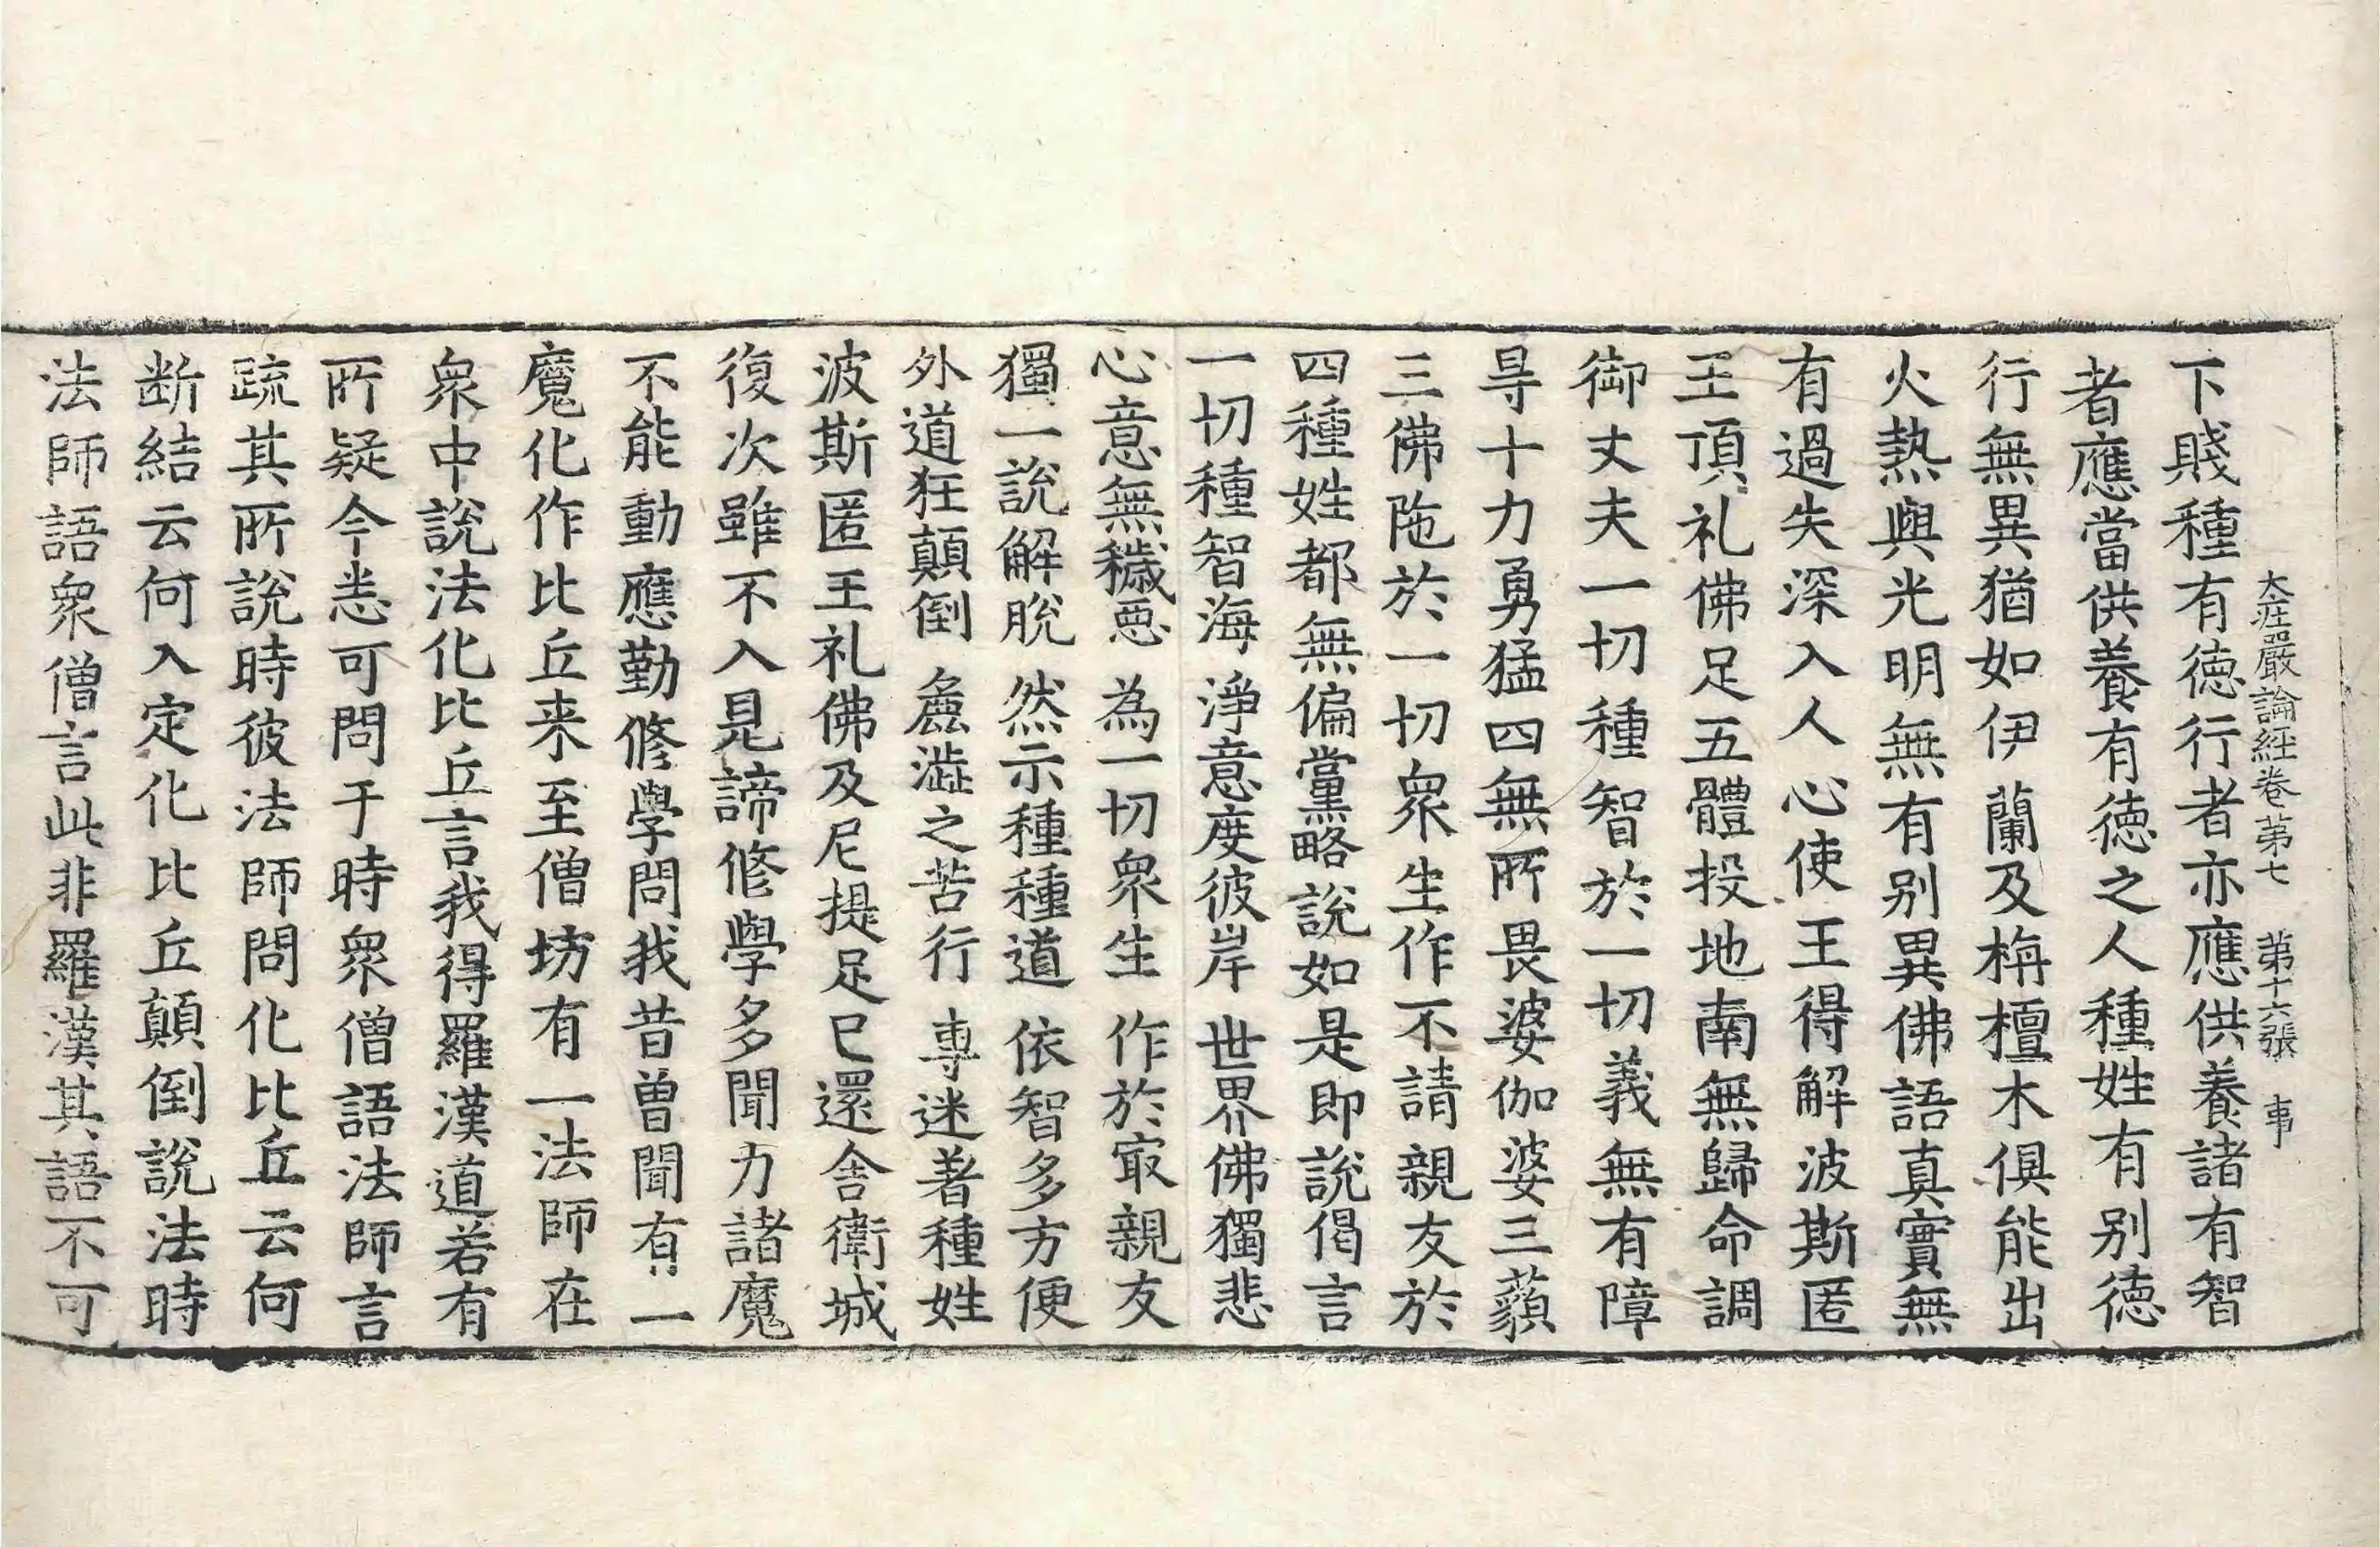 大庄嚴論經卷第七 第十六張 事
下賤種有德行者亦應供養諸有智
者應當供養有德之人種姓有别德
行無異猶如伊蘭及栴檀木俱能出
火熱與光明無有别異佛語真實無
有過失深入人心使王得解波斯匿
王頂礼佛足五體投地南無歸命調
御丈夫一切種智於一切義無有障
㝵十力勇猛四無所畏婆伽婆三藐
三佛陁於一切衆生作不請親友於
四種姓都無偏黨略說如是即說偈言
一切種智海 淨意度彼岸 世界佛獨悲
心意無穢惡 為一切衆生 作於㝡親友
獨一說解脫 然示種種道 依智多方便
外道狂顛倒 麁澁之苦行 專迷著種姓
波斯匿王礼佛及尼提足已還舍衛城
復次雖不入見諦修學多聞力諸魔
不能動應勤修學問我昔曾聞有一
魔化作比丘来至僧坊有一法師在
衆中說法化比丘言我得羅漢道若有
所疑今悉可問于時衆僧語法師言
疏其所說時彼法師問化比丘云何
断結云何入定化比丘顛倒說法時
法師語衆僧言此非羅漢其語不可